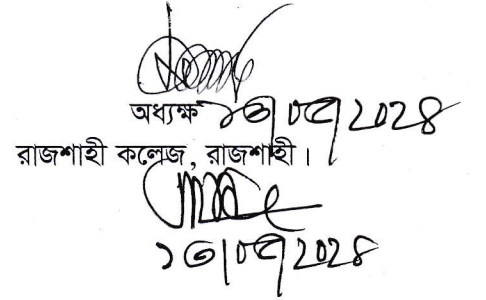 অধ্যক্ষ ১৩/০৫/২০২৪
রাজশাহী কলেজ, রাজশাহী।
১৩/০৫/২০২৪